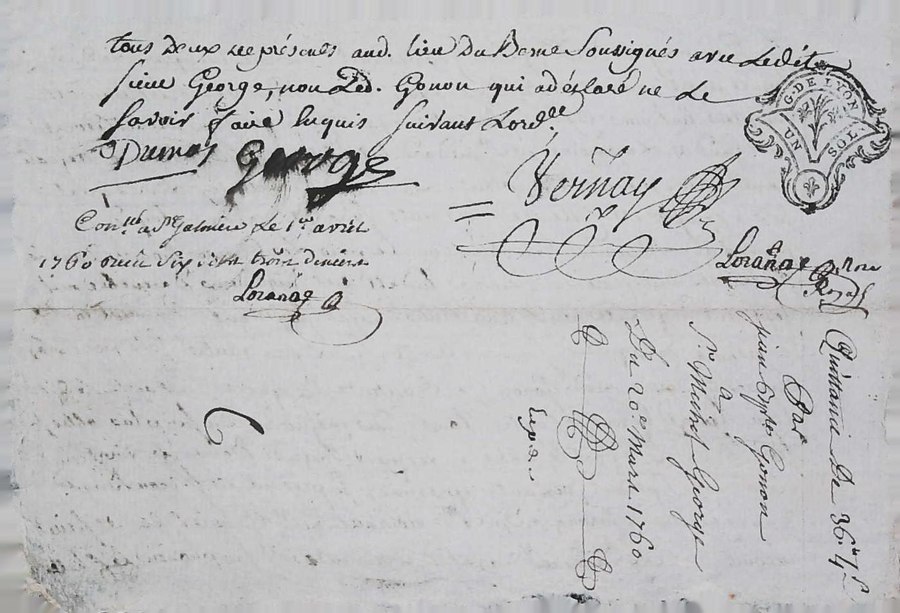 tous deux représentés aud. lieu Du Berne Soussignés avec Ledit
sieur George, non Led. Gonon qui a déclaré ne Le
savoir faire Enquis suivant L'ord.ce
Dumas George
Vernay
G. DE LYON
UN SOL.
Con.llé a St Galmier Le 1er avril
1760 reçu six sols trois deniers
Loranae
Loranae
No.re Royal
Quittance De 36
Par
jean Bpte Gonon
a
Sr Michel George
Du 20e Mars 1760
Exp.e